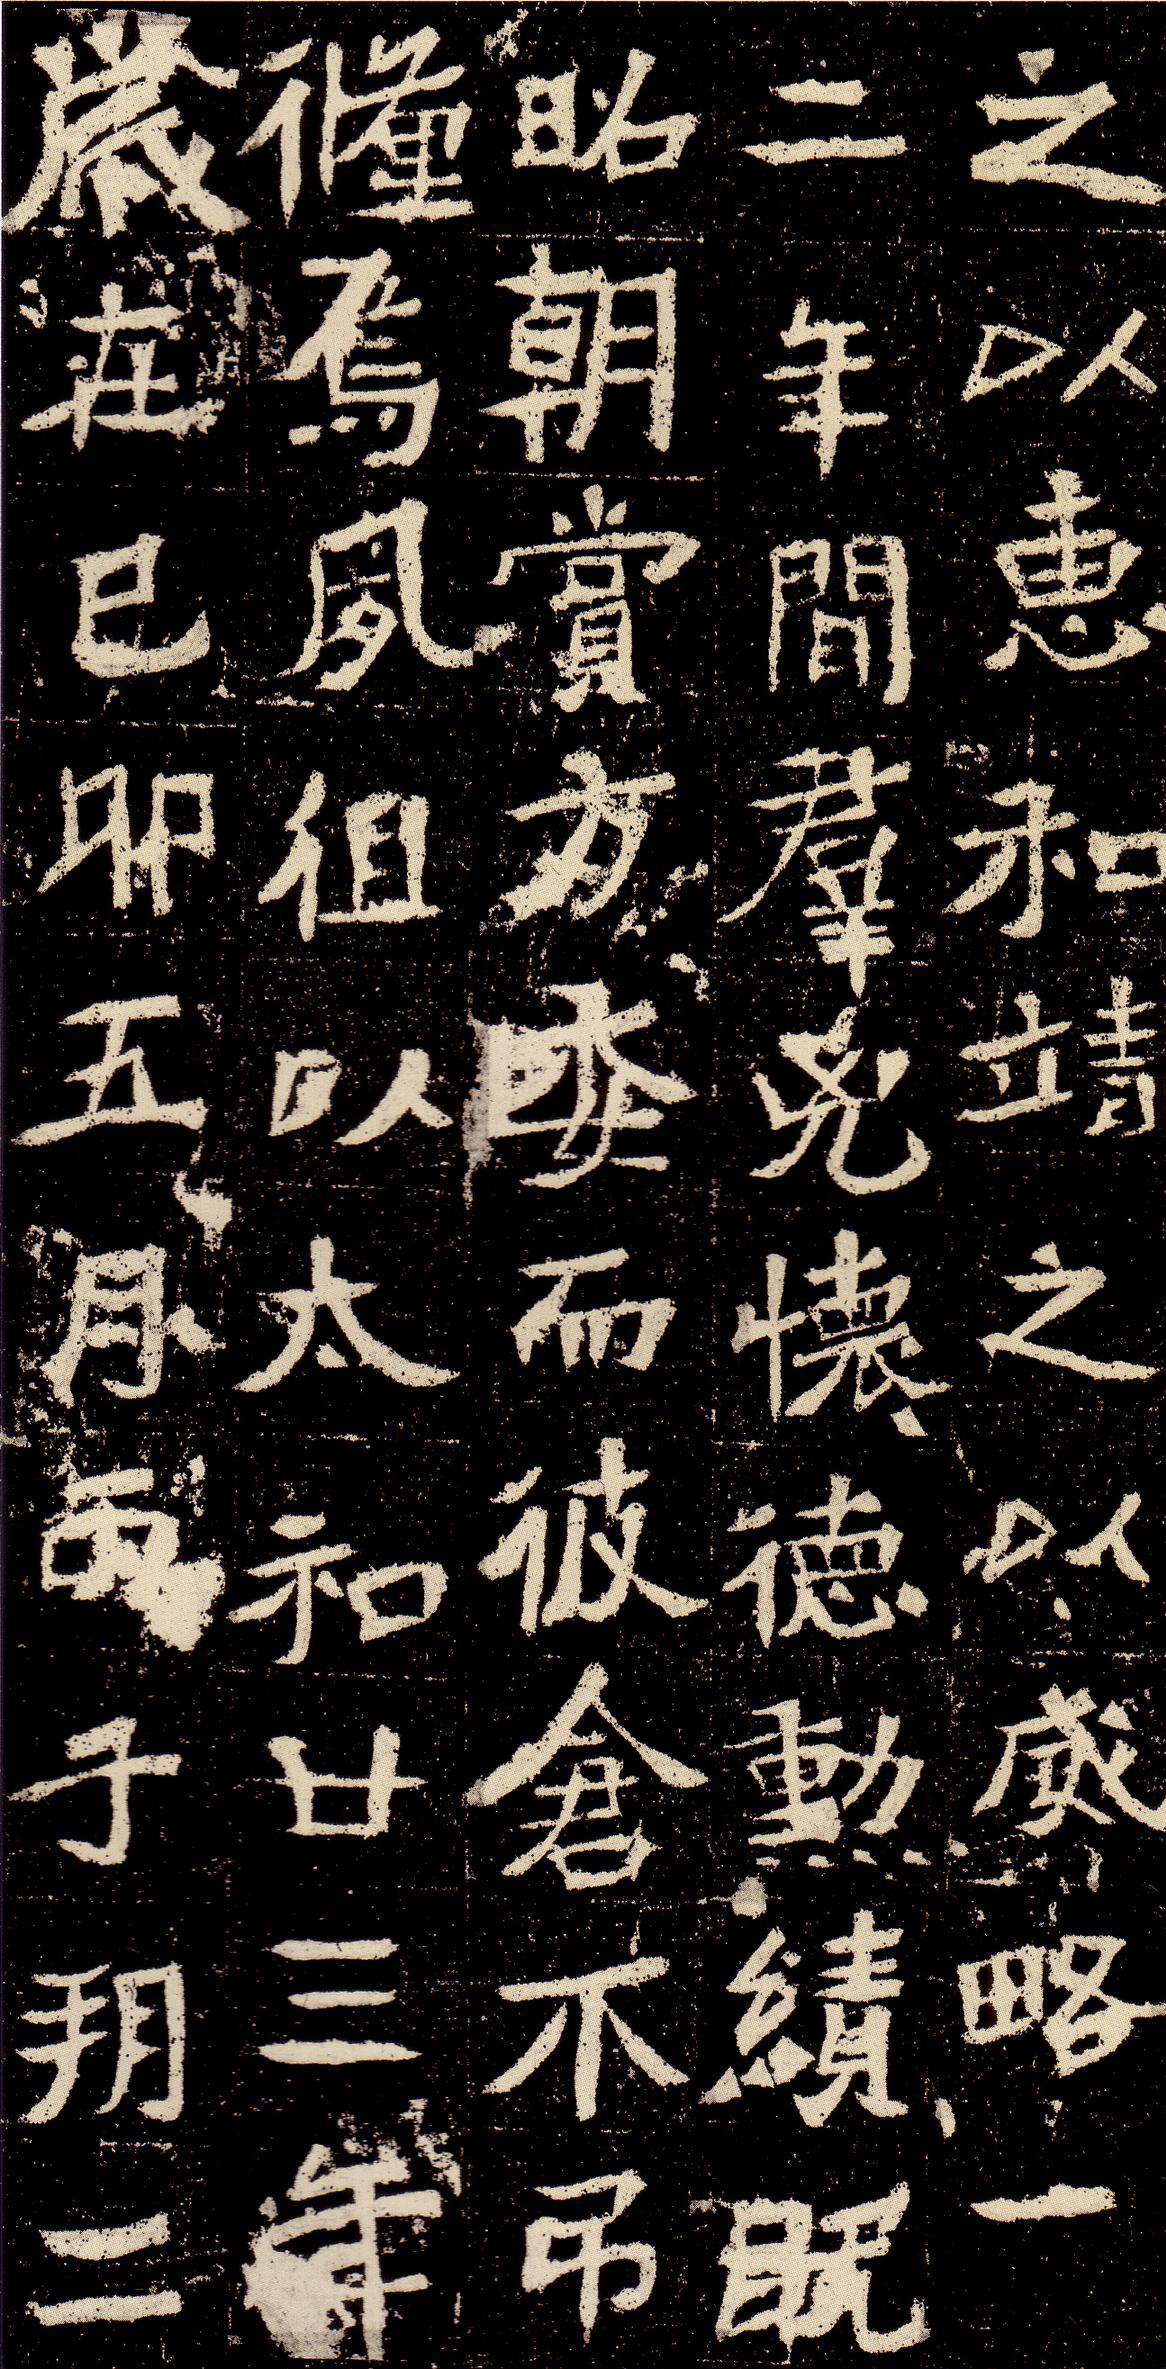 之以惠和靖之以威略一
二年間羣兇懷德勳績既
昭朝賞方委而彼倉不弔
儵焉夙徂以太和廿三年
歲在己卯五月丙子朔二